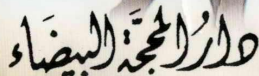 دارُ المحجّة البيضَاء